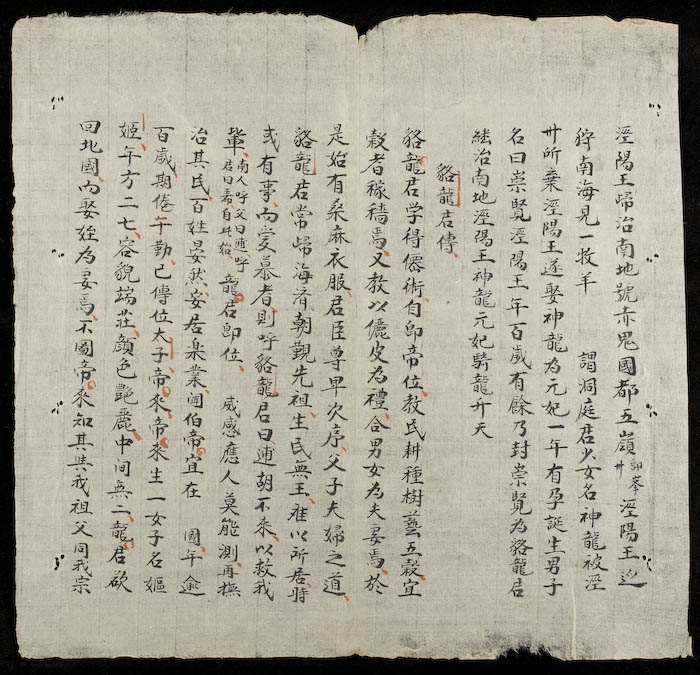 涇陽王帰治南地號赤鬼國都五嶺即峯卅涇陽王巡
狩南海見一牧羊 謂洞庭君少女名神龍被涇
卅所棄涇陽王遂娶神龍為元妃一年有孕誕生男子
名曰崇覽涇陽王年百歲有餘乃封崇覽為貉龍君
継治南地涇陽王神龍元妃騎龍升天
貉龍君傳
貉龍君学得僊術自即帝位教民耕種樹藝五穀宜
穀者稼穡焉又教以儷皮為禮合男女為夫妻焉於
是始有桑麻衣服君臣尊卑次序父子夫婦之道
貉龍君常帰海濟朝覲先祖生民無主雖以所居時
或有事而愛慕者則呼貉龍君曰逋胡不来以救我
輩南人呼父曰逋呼君曰希自此始龍君即位 威感應人莫能測再撫
治其民百姓晏然安居楽業聞伯帝宜在 國年逾
百歲期倦午勤已傳位太子帝来帝来生一女子名嫗
姬年方二七容貌端荘顔色艶麗中间無二龍君欲
回北國内娶姪為妻焉不圖帝来知其與我祖父同我宗